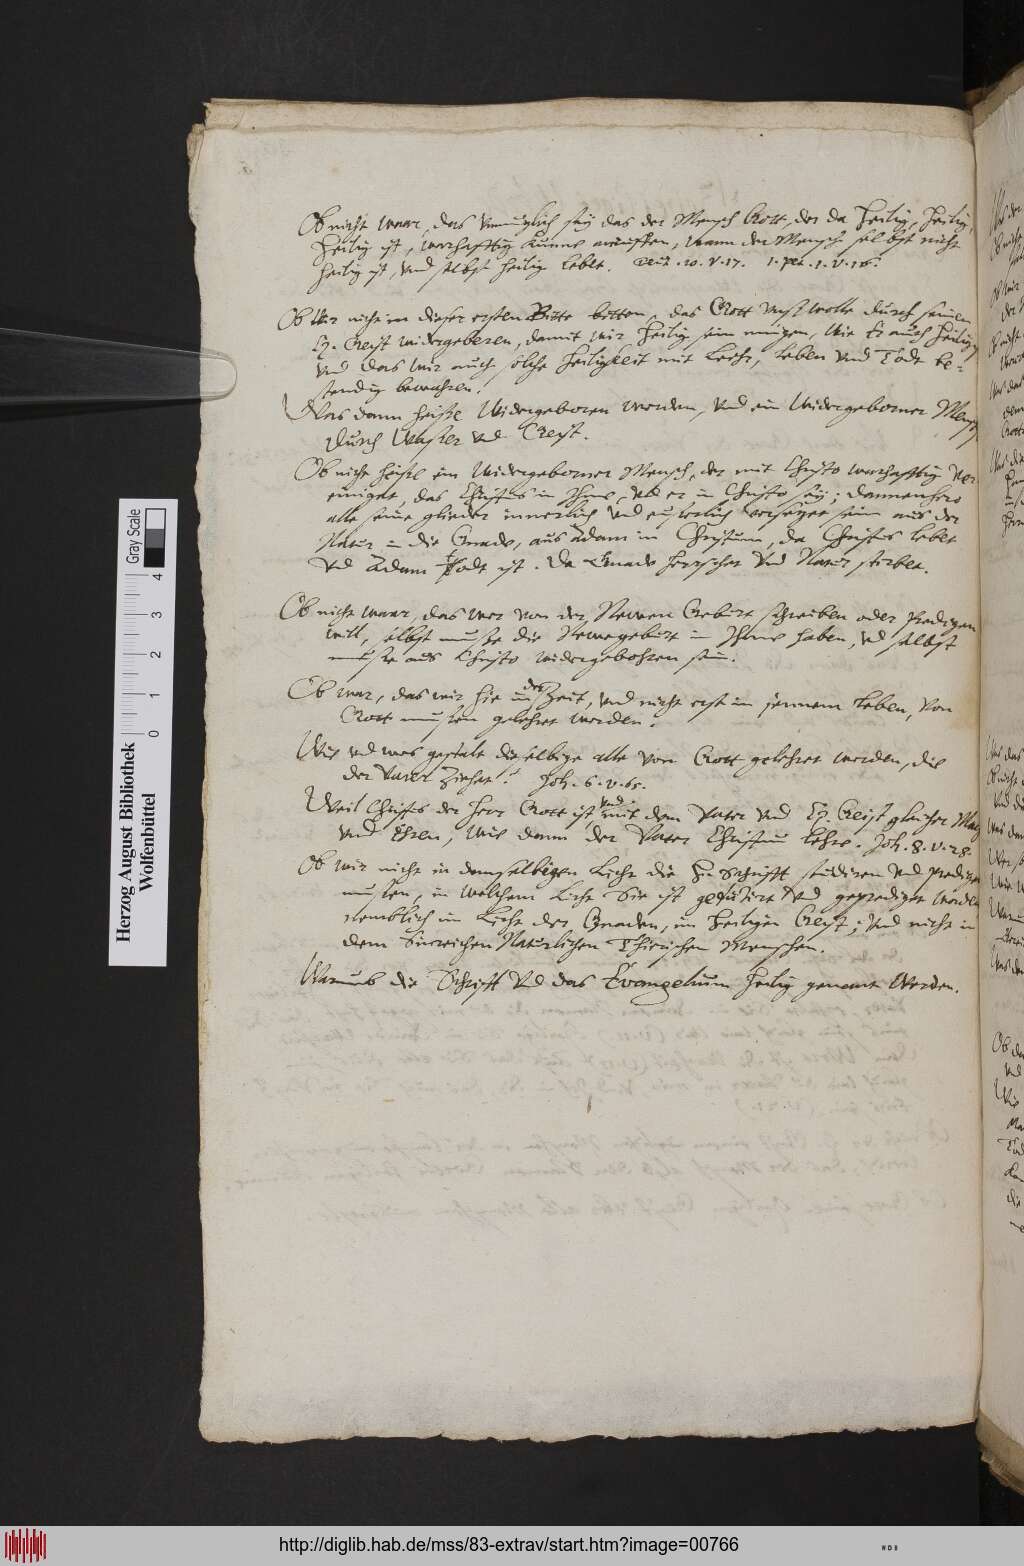 Ob nicht waar, das vnmuglich sey das der Mensch Gott, der da heilig, heilig,
heilig ist, warhafftig kunne anruffen, wann der Mensch selbst nicht
heilig ist, und selbst heilig leblet. 20. v. 17. 1. Pet. 1. v. 16.
Ob wir nicht in dieser ersten Bitte bitten, das Gott unß wolle durch seinen
H. Geist widergeberen, damit wir heilig sein mügen, wie Er auch heilig,
und das wir auch solche heiligkeit mit Lehr, Leben und Todt be-
stendig bewahren.
Was dann heisse Widergeboren werden, und ein Widergeborner Mensch
durch Wasser und Geist.
Ob nicht heisse ein Widergeborner Mensch, der mit Christo warhafftig ver
einiget, das Christus in Ihme, und er in Christo sey; dannenhero
alle seine glieder innerlich und eusserlich versetzet sein aus der
Natur in die Gnade, aus Adam in Christum, da Christus leblet
und Adam Todt ist. Da Gnade herrschet und Natur sterblet.
Ob nicht waar, das wer von der Newen Geburt schreiben oder Predigen
will, selbst musse die Newegeburt in Ihme haben, und selbst
musse aus Christo widergebohren sein.
Ob war, das wir hie in der Zeit, und nicht erst in jennem Leben, von
Gott mussen gelehret werden.
Wie und was gestalt dieselbige alle von Gott gelehret werden, die
der Vatter Ziehet? Joh. 6. v. 65.
Weil Christus der Herr Gott ist, und mit dem Vater und H. Geist gleicher Macht
und Ehren, wie dann der Vater Christum lehre. Joh. 8. v. 28.
Ob wir nicht in demselbigen Liecht die H. Schrifft studiren und predigen
mussen, in welchem Liecht Sie ist und geprediget worden
nemblich im Liecht der Gnaden, im heiligen Geist; und nicht in
dem Naturlichen Thierischen Menschen.
Warumb die Schrifft und das Evangelium heilig genant werden.
Herzog August Bibliothek
Wolfenbüttel
0 1 2 3 4
Gray Scale
http://diglib.hab.de/mss/83-extrav/start.htm?image=00766